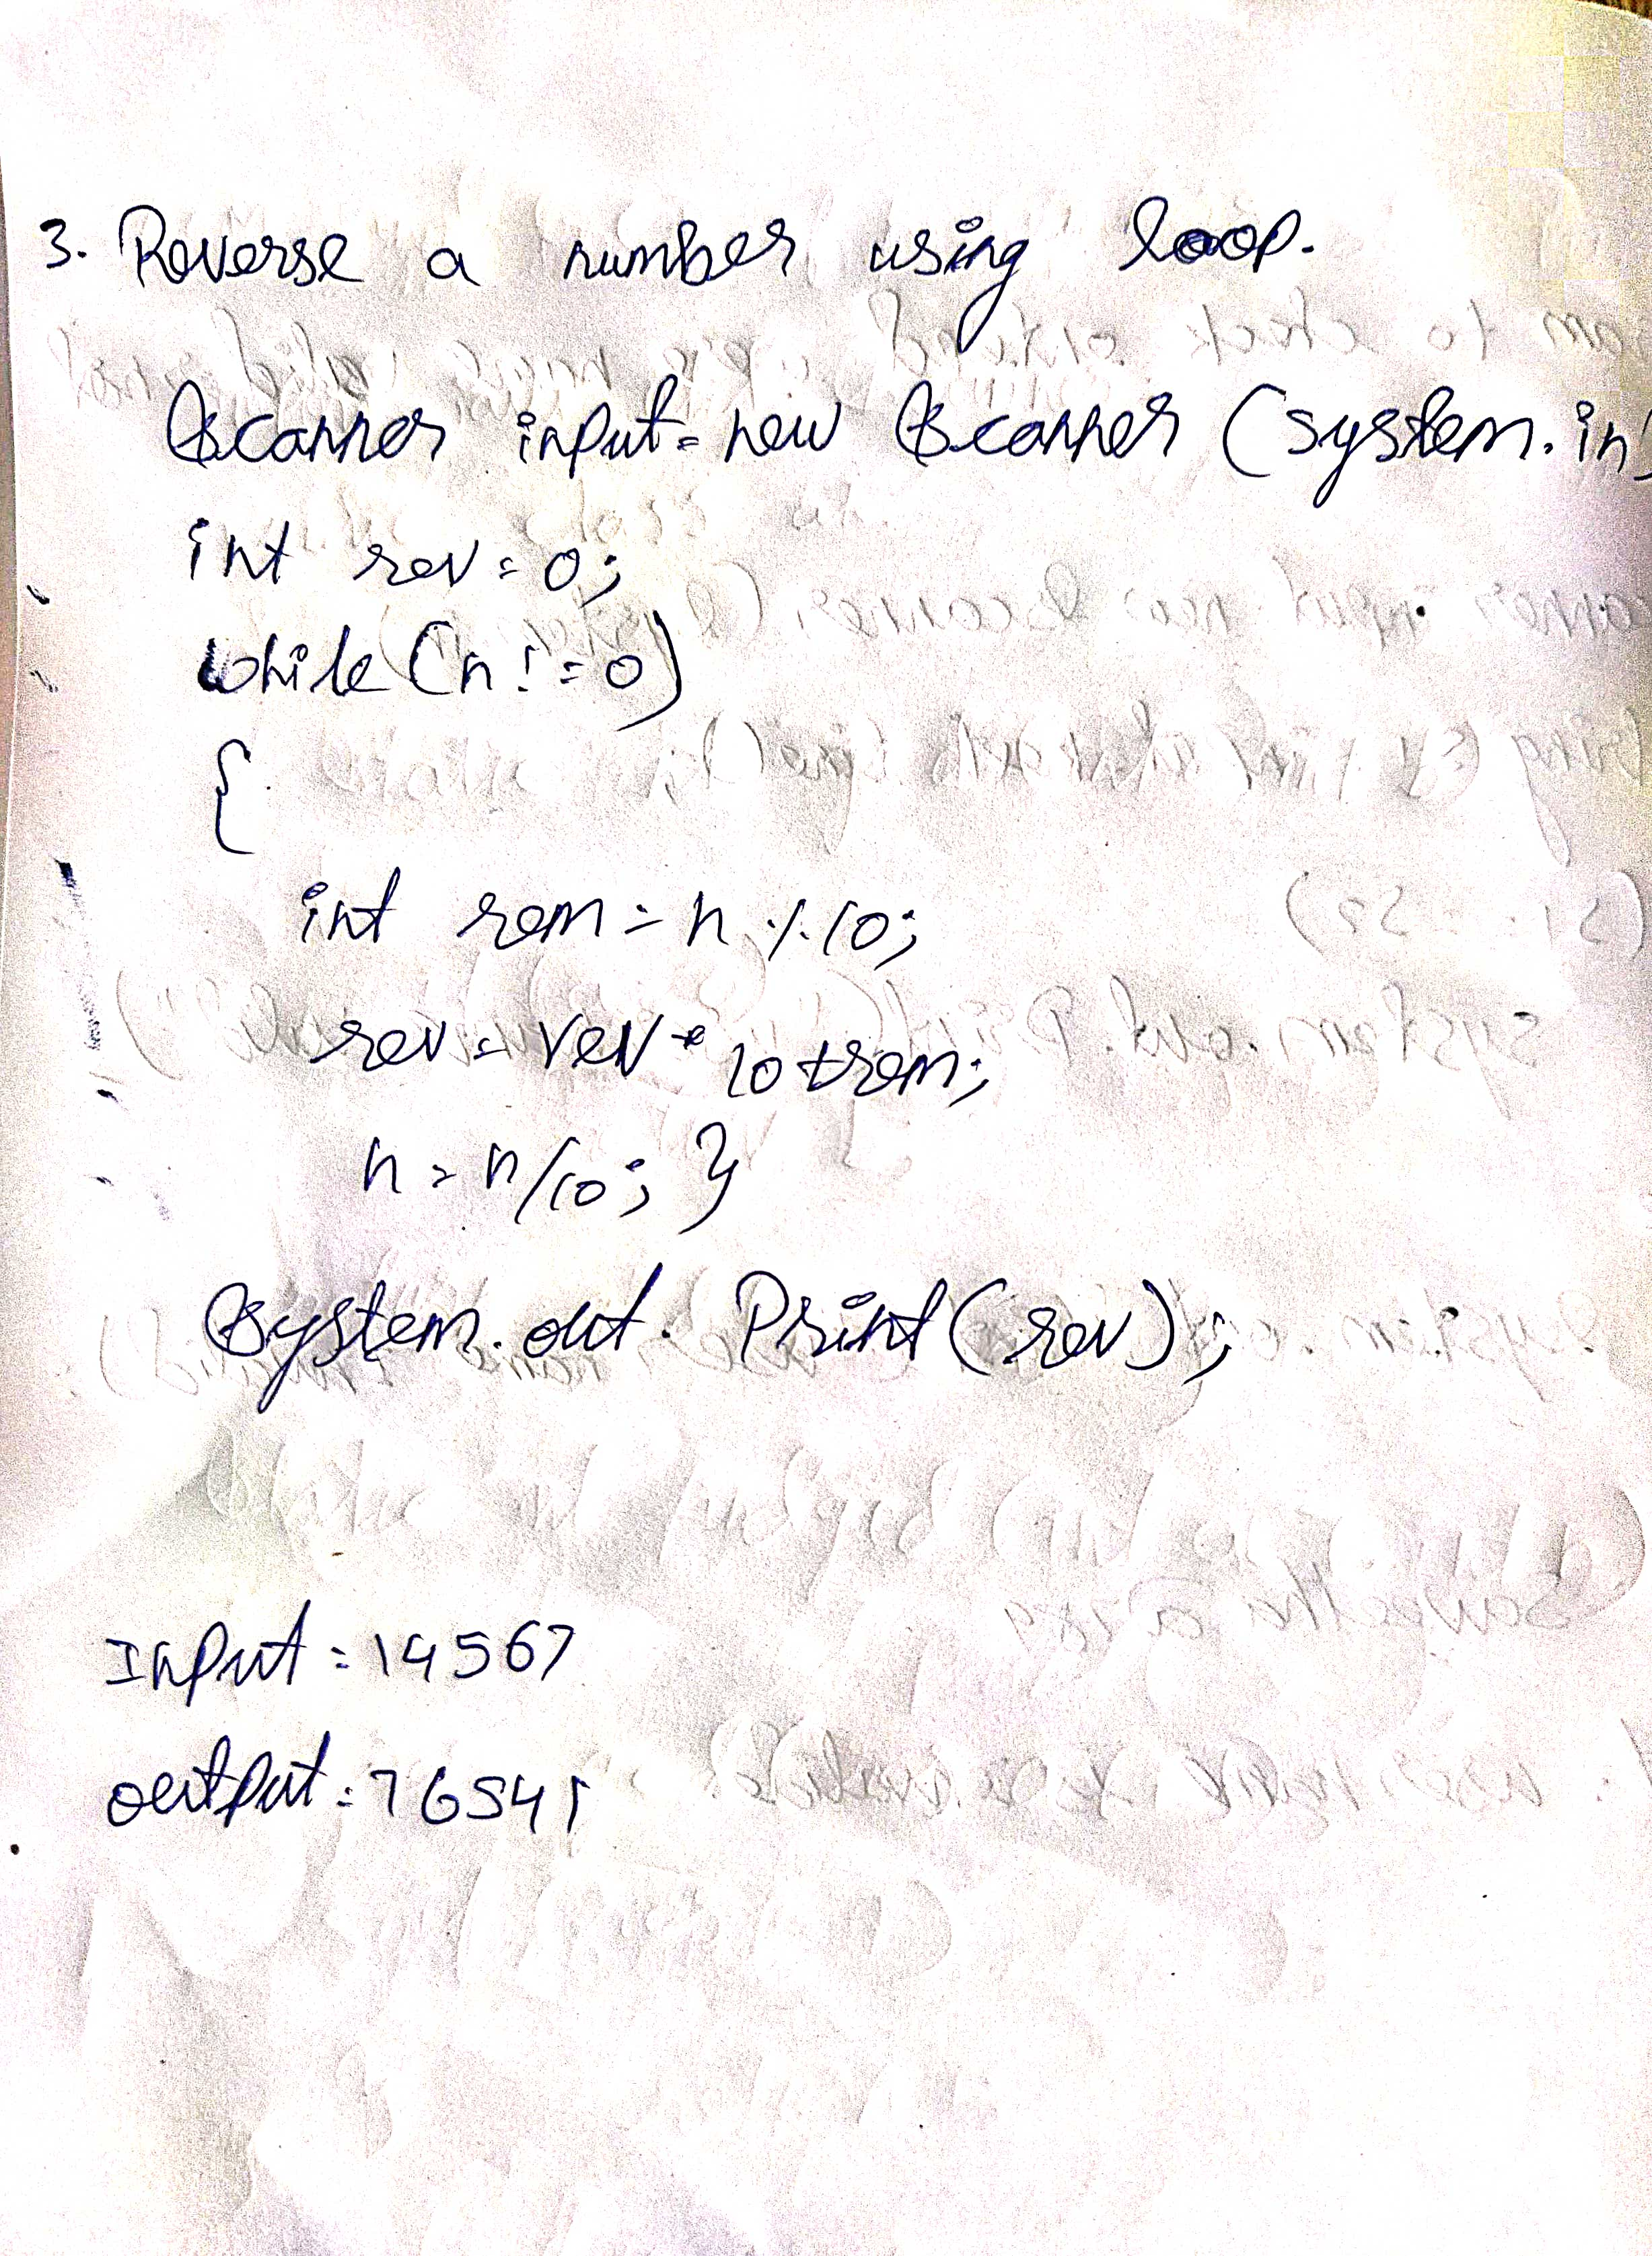 3. Reverse a number using loop.
Scanner input = new Scanner (system.in)
int rev = 0;
while (n ! = 0)
{
int rem = n % 10;
rev = rev * 10 + rem;
n = n/10; }
System.out. Print (rev);
Input = 14567
output = 76541